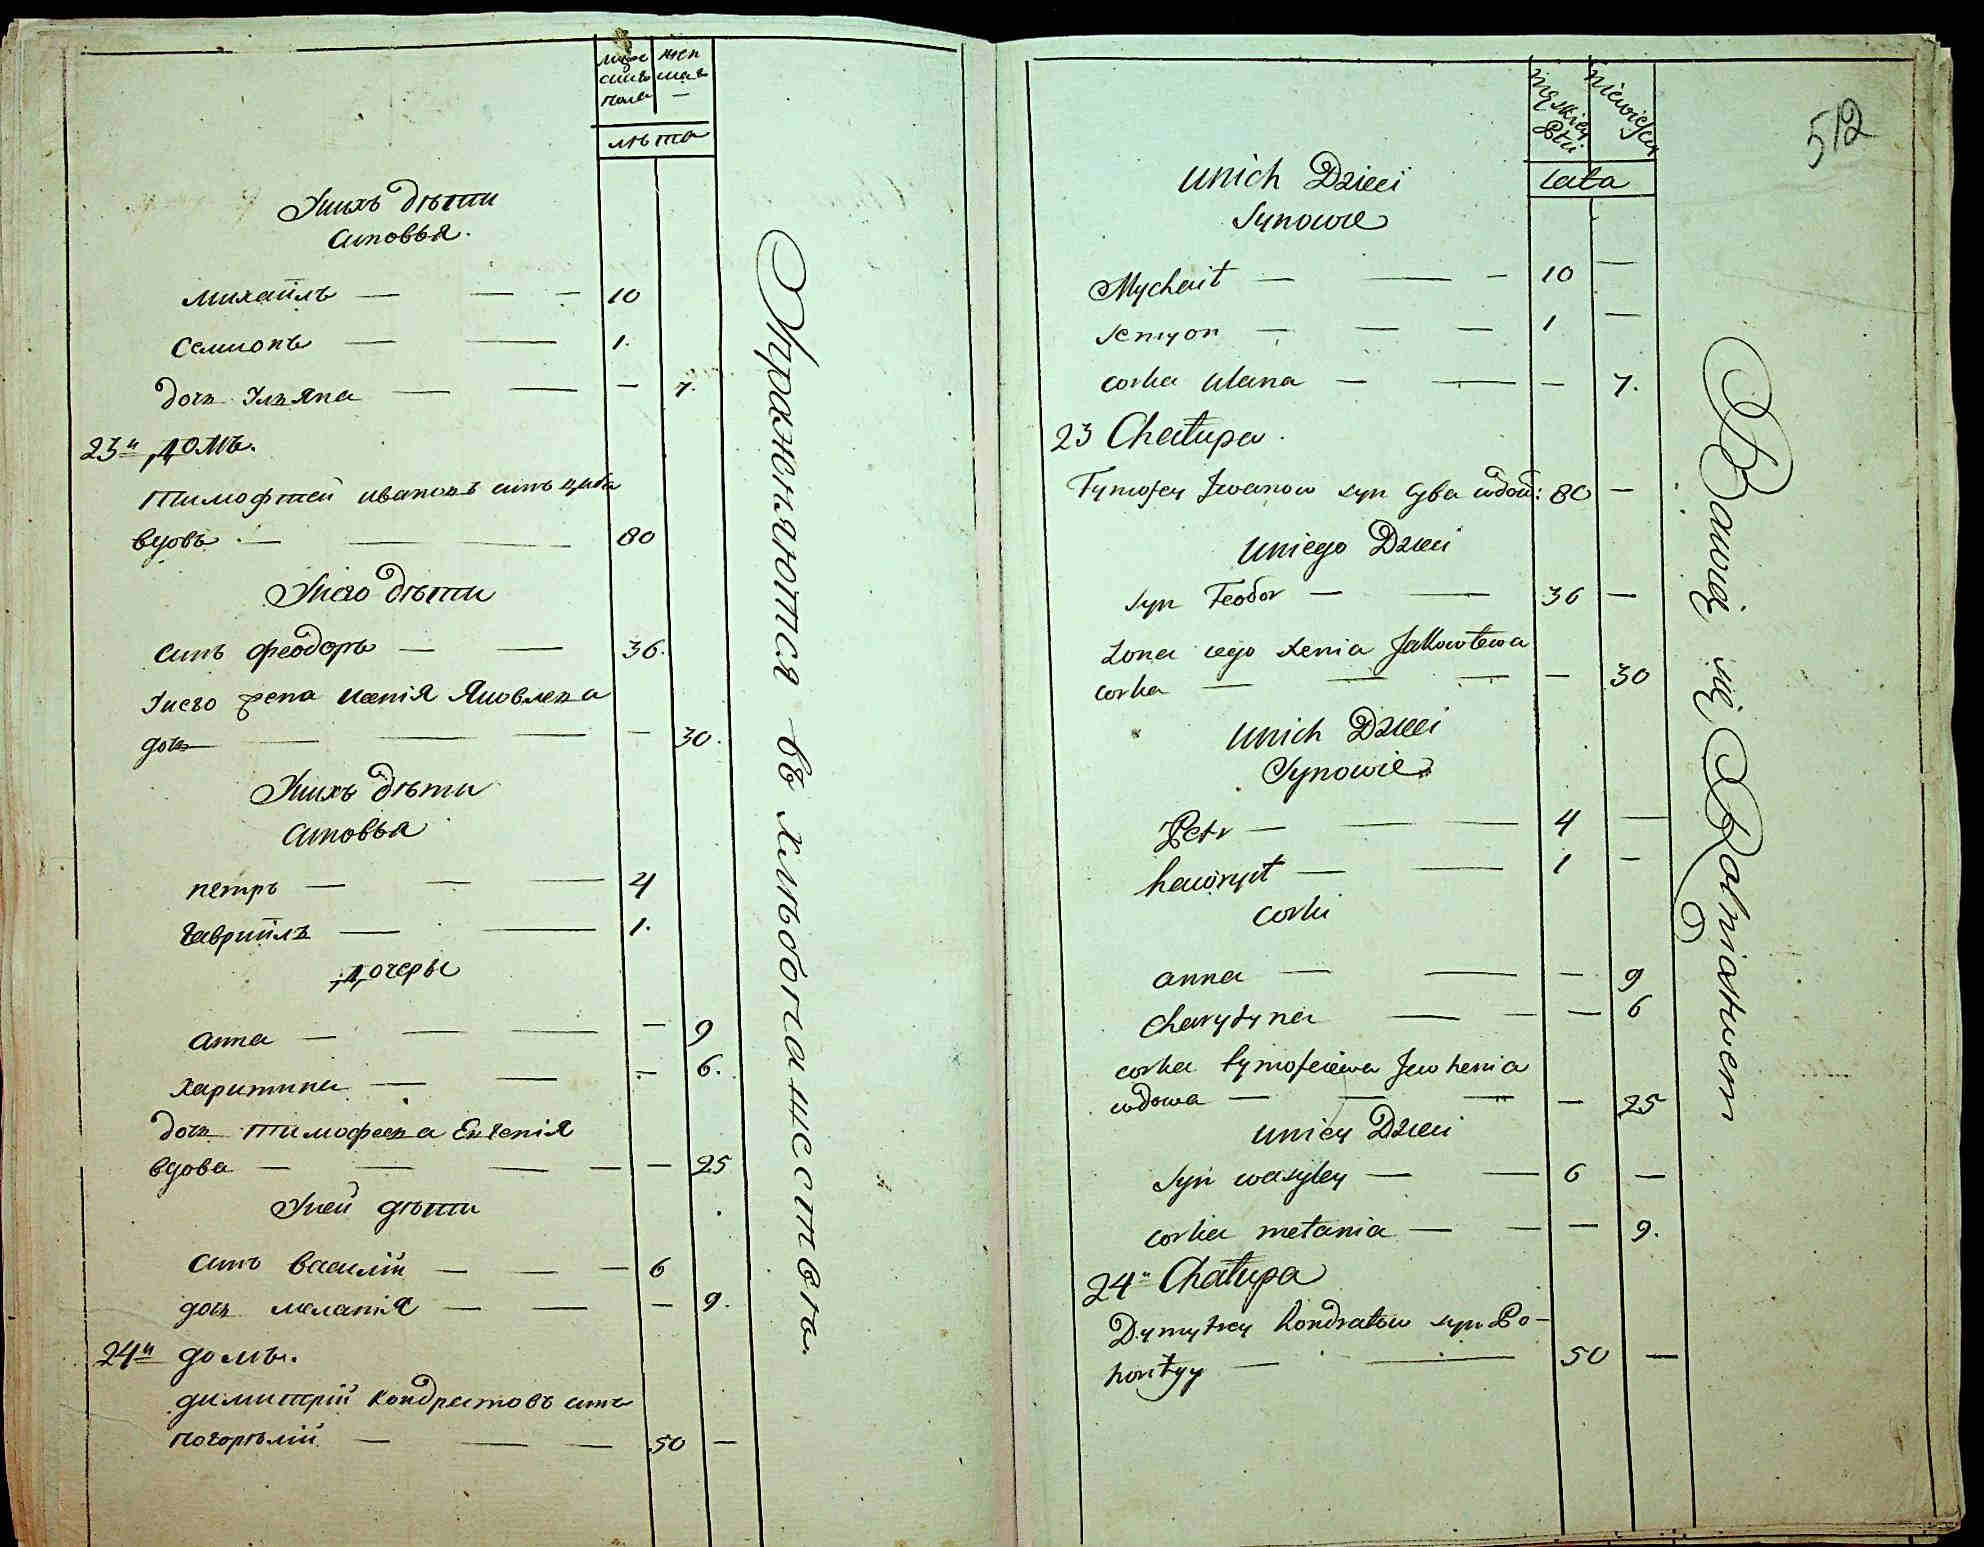 мужеска жен
скаго ска
пола —
лѣта
Унихъ дѣти
синовья.
михаилъ — — — 10
Семионъ — — 1.
дочь Улияна — — — 7.
23й домъ.
тимофтей ивановъ синъ циба
вдовъ — — 80
Унего дѣти
синъ феодоръ — — 36.
Унего жена ксенія Яковлева
дочь — — — — 30.
Унихъ дѣти
синовья
петръ — — — 4
гавриилъ — — 1.
дочеры
анна — — — — 9
харитина — — — 6.
дочь тимофеева Евгенія
вдова — — — — — 25
Уней дѣти
синъ василій — — — 6
дочь меланія — — — 9.
24й домъ.
димитрій кондратовъ синъ
погорѣлій — — — 50 —
Упражняются въ хлѣбопашествѣ.
512
męskiey płci
niewieściey
Lata
Unich Dzieci
Synowie
Mychaił — — - 10 —
Semyon — — — 1 —
corka Ulana — — — 7.
23 Chałupa.
Tymofey Iwanow syn Cyba wdow: 80 —
Uniego Dzieci
Syn Feodor — — 36 —
Żona iego Xenia Jakowlewa
corka — — — — 30
Unich Dzieci
Synowie
Petr — — — 4 —
hawryił — — 1 —
Corki
anna — — — 9
Charytyna — — — 6
corka tymofeiewa Jewhenia
wdowa — — — — 25
Uniey Dzieci
Syn wasyley — — 6 —
corka mełania — — — 9.
24" Chałupa
Dymytrey Kondratow syn Po-
horiłyy — — 50 —
Bawią się Rolnictwem